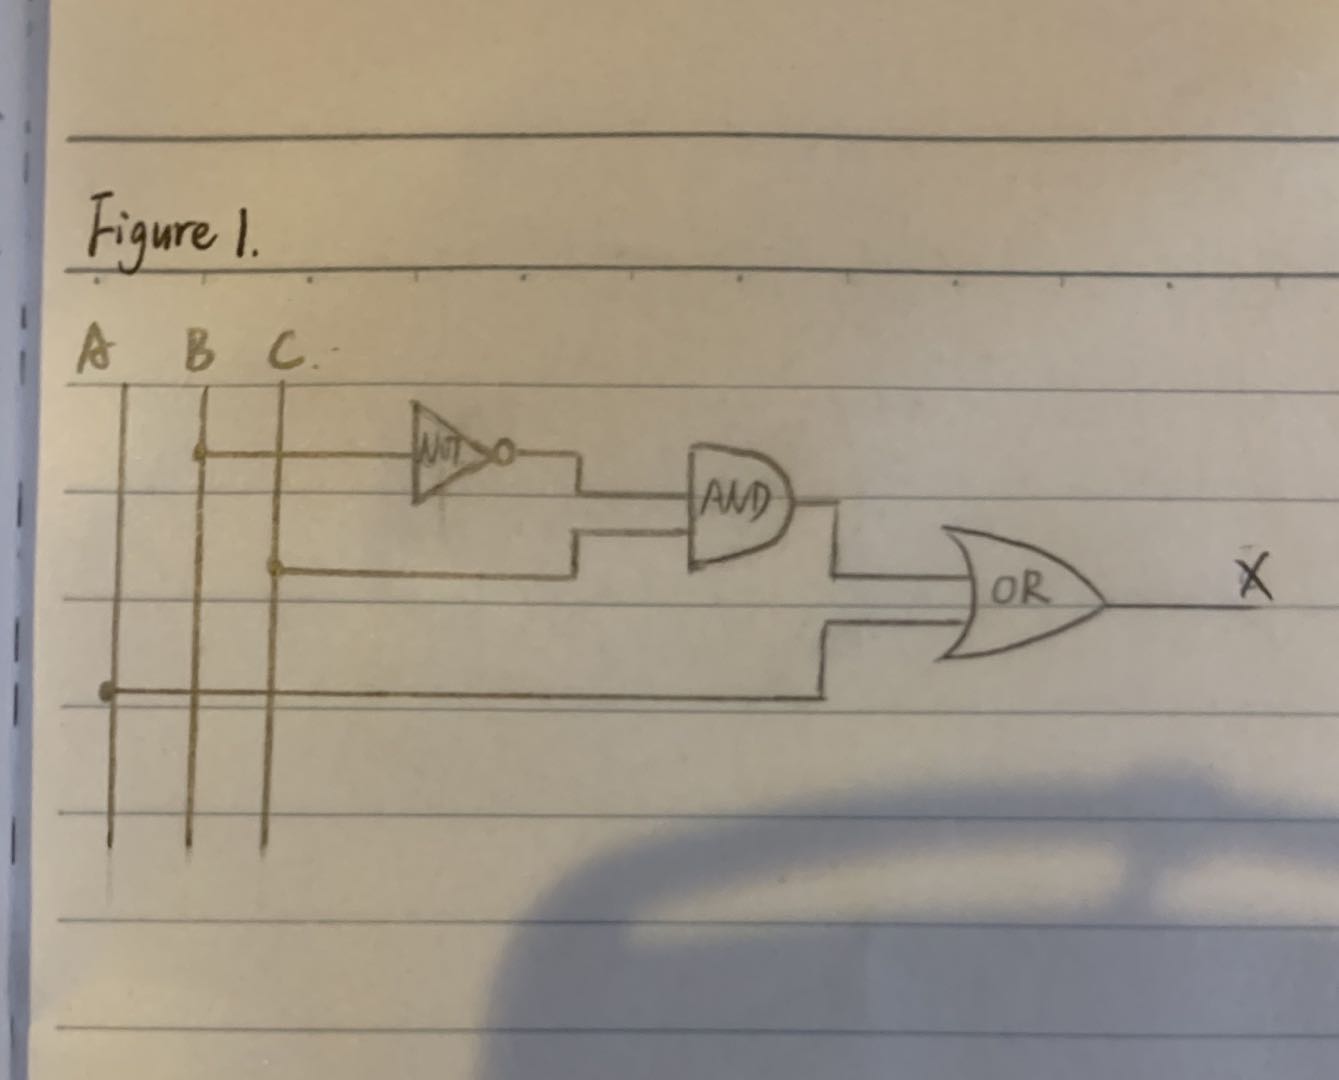 Figure 1.
A B C.
NOT
AND
OR
X